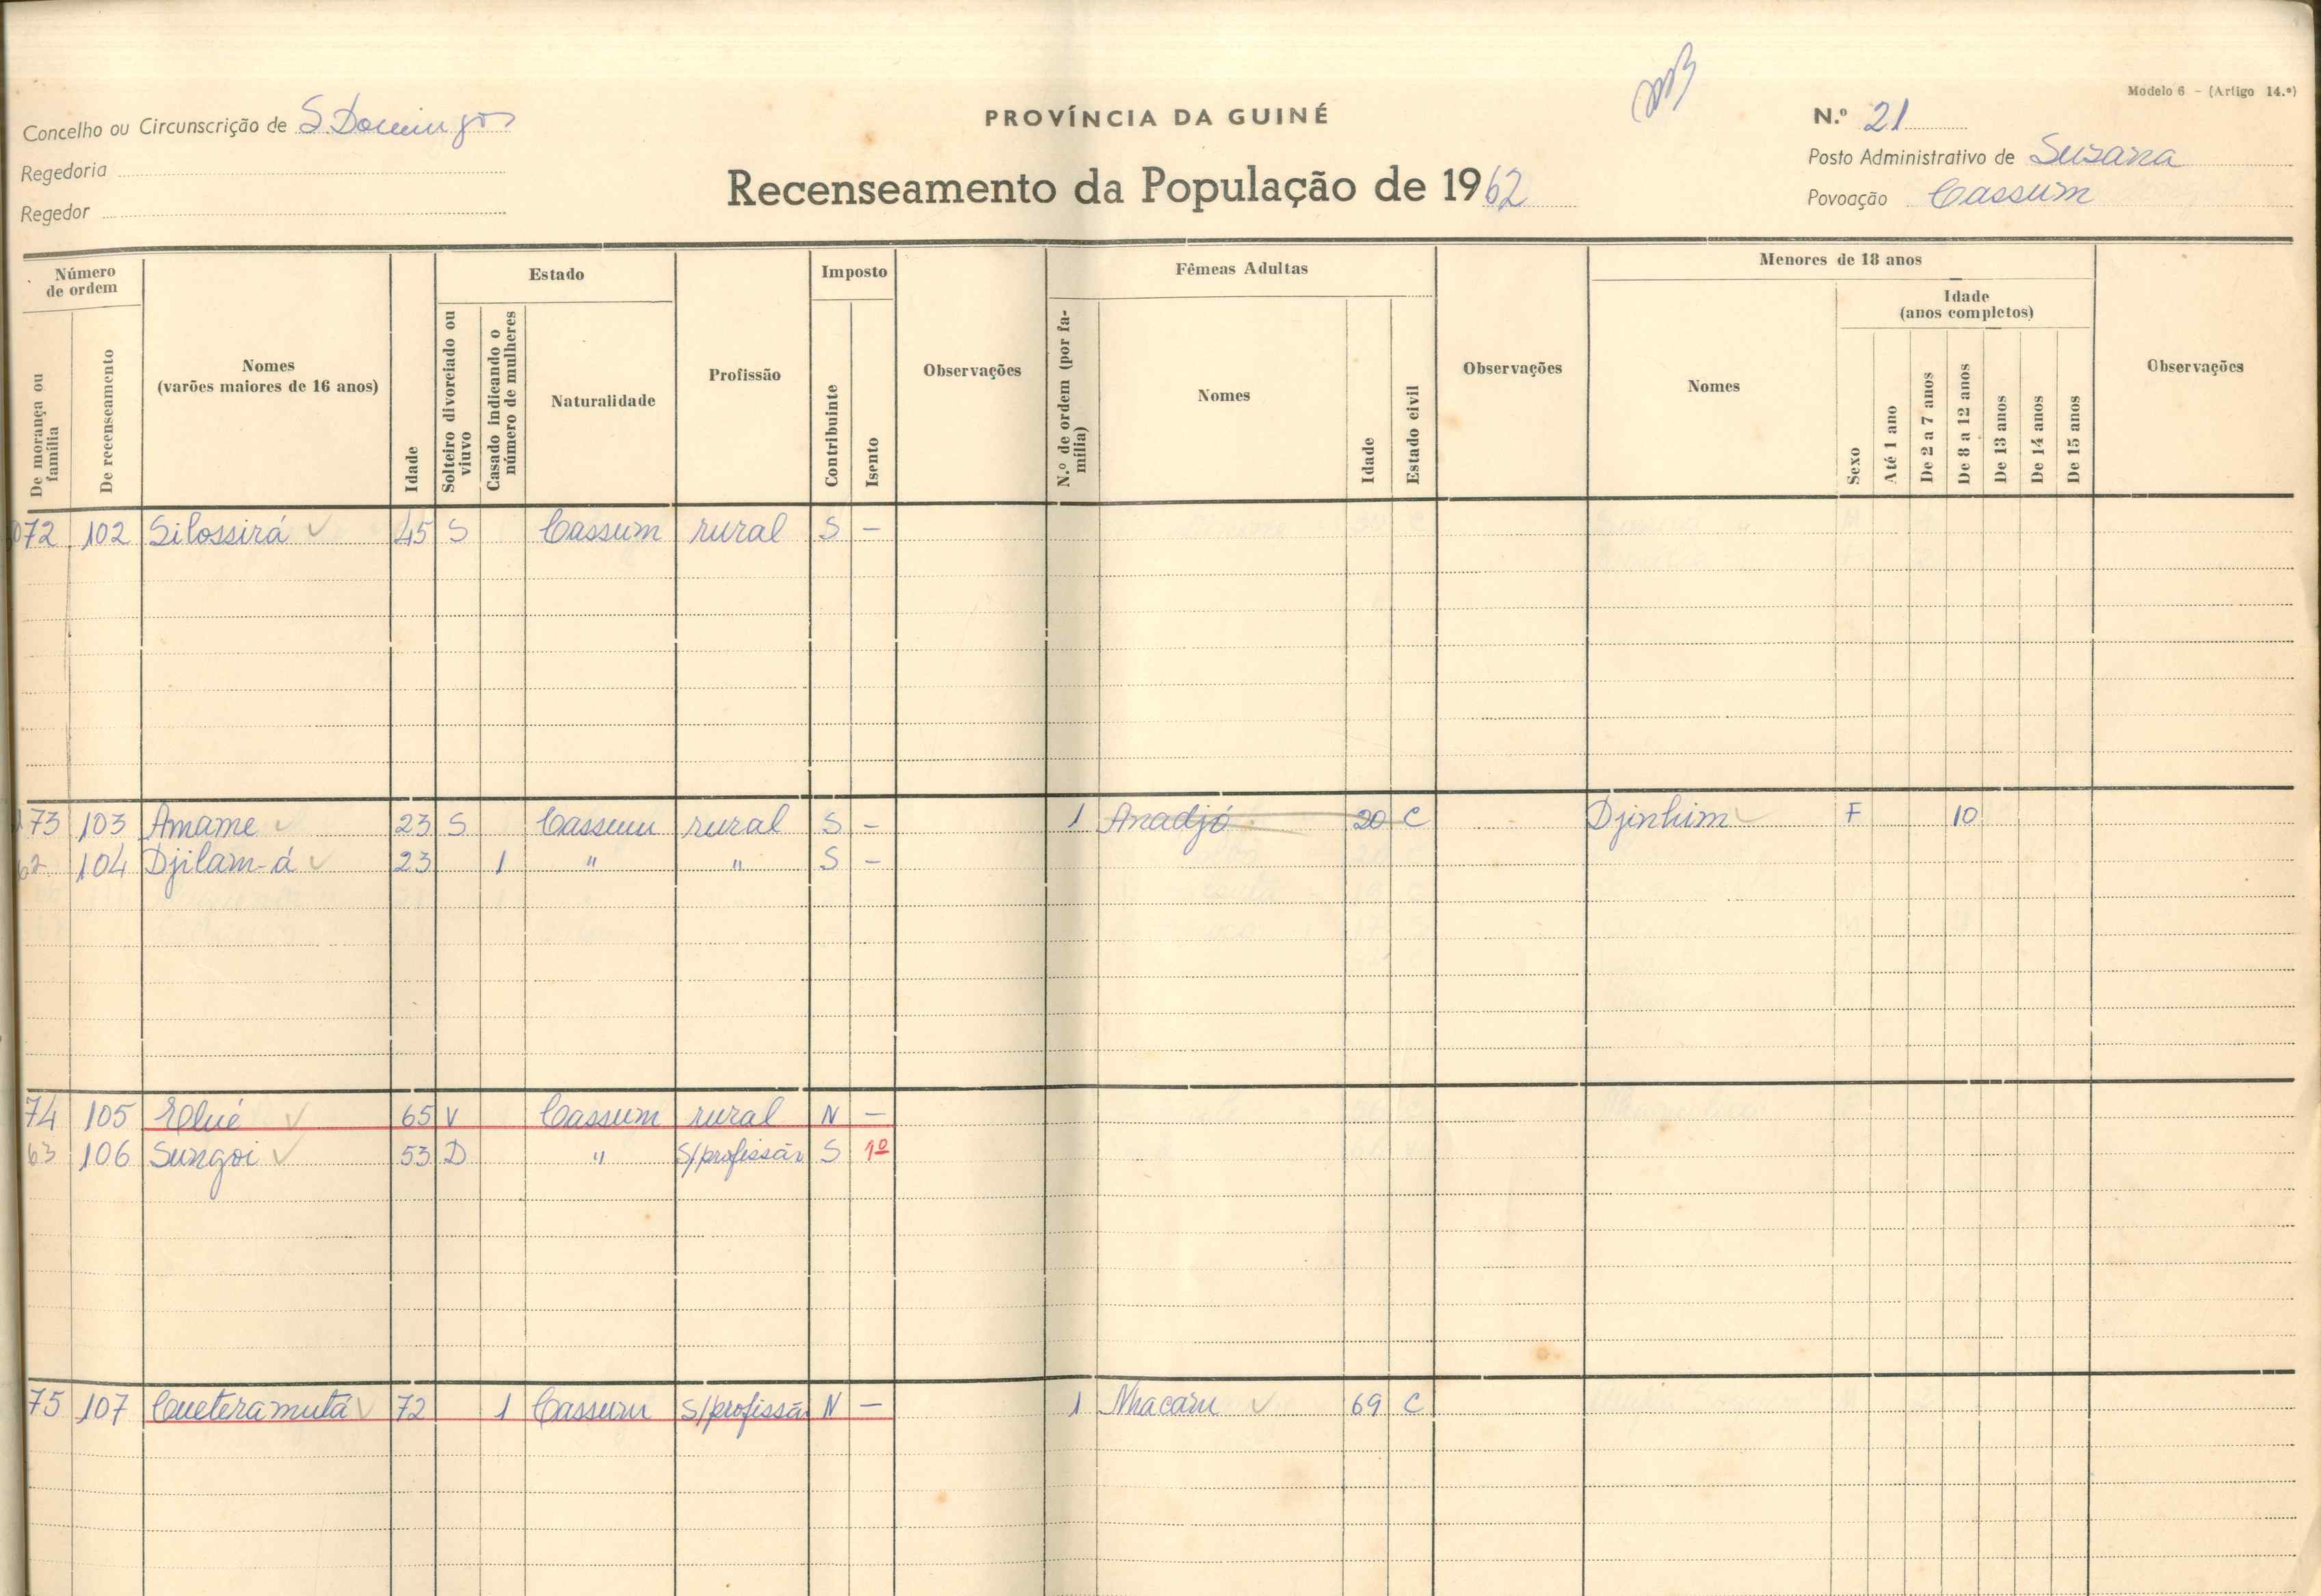 Modelo 6 - (Artigo 14.º)
Concelho ou Circunscrição de S. Domingos
PROVÍNCIA DA GUINÉ
N.º 21
Regedoria
Recenseamento da População de 1962
Posto Administrativo de Suzana
Regedor
Povoação Cassum
Número de ordem
De morança ou família
De recenseamento
Nomes
(varões maiores de 16 anos)
Idade
Estado
Solteiro divorciado ou viuvo
Casado indicando o número de mulheres
Naturalidade
Profissão
Imposto
Contribuinte
Isento
Observações
Fêmeas Adultas
N.º de ordem (por família)
Nomes
Idade
Estado civil
Observações
Menores de 18 anos
Nomes
Sexo
Idade
(anos completos)
Até 1 ano
De 2 a 7 anos
De 8 a 12 anos
De 13 anos
De 14 anos
De 15 anos
Observações
72 102 Silossirá 45 S Cassum rural S -
73 103 Amame 23 S Cassum rural S - 1 Anadjó 20 C Djinhim F 10
62 104 Djilam-á 23 1 " " S -
74 105 Elué 65 V Cassum rural N -
63 106 Sungoi 53 D " S/profissão S 1º
75 107 Cueteramutá 72 1 Cassum S/profissão N - 1 Nhacam 69 C